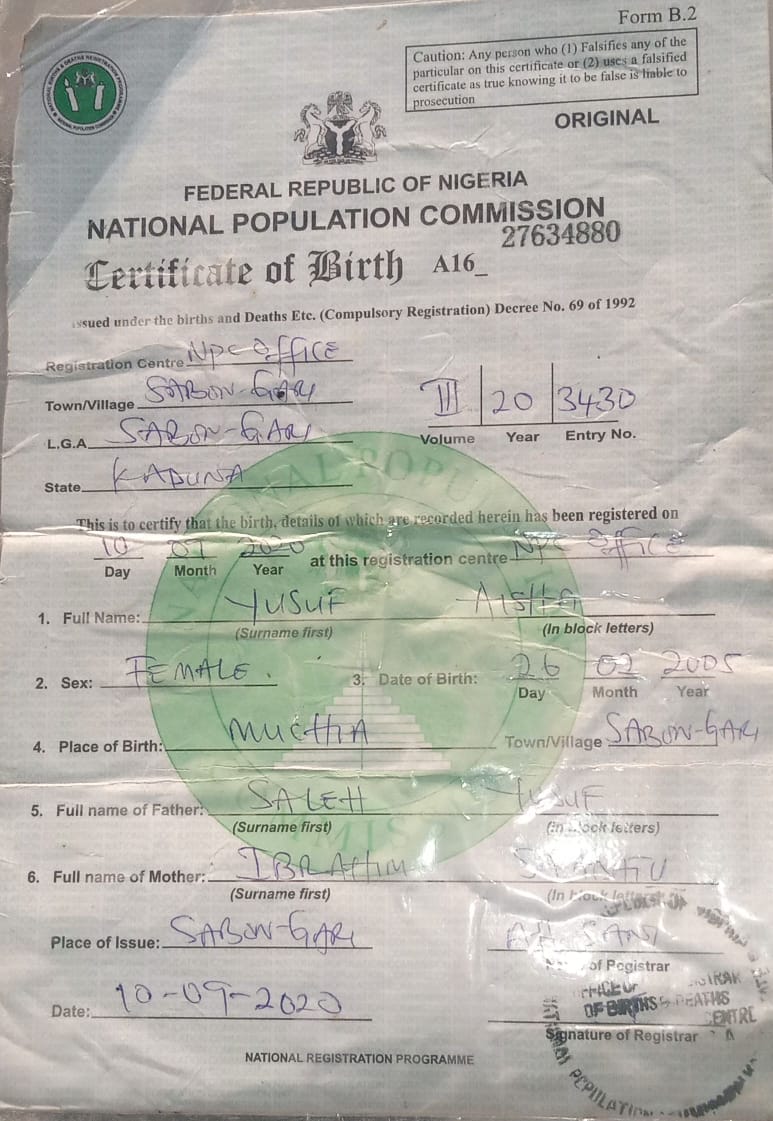 Form B.2
Caution: Any person who (1) Falsifies any of the
particular on this certificate or (2) uses a falsified
certificate as true knowing it to be false is liable to
prosecution
ORIGINAL
FEDERAL REPUBLIC OF NIGERIA
NATIONAL POPULATION COMMISSION
27634880
Certificate of Birth A16_
issued under the births and Deaths Etc. (Compulsory Registration) Decree No. 69 of 1992
Registration Centre NPC OFFICE
Town/Village SABON-GARI
L.G.A SABON-GARI
III 20 3430
Volume Year Entry No.
State KADUNA
This is to certify that the birth, details of which are recorded herein has been registered on
10 09 2020 at this registration centre NPC OFFICE
Day Month Year
1. Full Name: YUSUF AISHA
(Surname first) (In block letters)
2. Sex: FEMALE 3. Date of Birth: 26 02 2005
Day Month Year
4. Place of Birth: MUCHIA Town/Village SABON-GARI
5. Full name of Father: SALEH YUSUF
(Surname first) (in block letters)
6. Full name of Mother: IBRAHIM
(Surname first) (In block
Place of Issue: SABON-GARI SANI
of Registrar
Date: 10-09-2020
OF BIRTHS & DEATHS
Signature of Registrar
NATIONAL REGISTRATION PROGRAMME